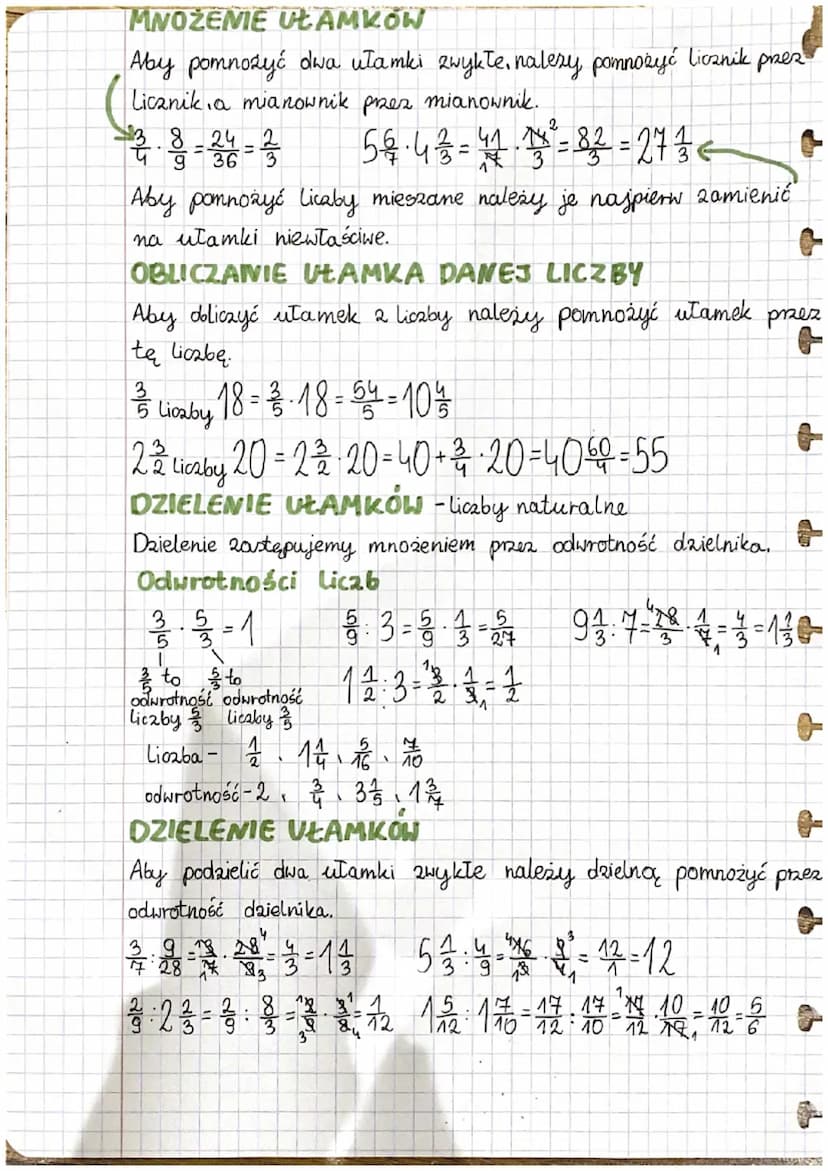 MNOŻENIE UŁAMKÓW
Aby pomnożyć dwa ułamki zwykłe, należy pomnożyć licznik przez
licznik, a mianownik przez mianownik.
3/4 · 8/9 = 24/36 = 2/3    5 6/7 · 4 2/3 = 41/7 1 · 14/3 2 = 82/3 = 27 1/3
Aby pomnożyć liczby mieszane należy je najpierw zamienić
na ułamki niewłaściwe.
OBLICZANIE UŁAMKA DANEJ LICZBY
Aby obliczyć ułamek z liczby należy pomnożyć ułamek przez
tę liczbę.
3/5 liczby 18 = 3/5 · 18 = 54/5 = 10 4/5
2 3/2 liczby 20 = 2 3/2 · 20 = 40 + 3/4 · 20 = 40 60/4 = 55
DZIELENIE UŁAMKÓW - liczby naturalne
Dzielenie zastępujemy mnożeniem przez odwrotność dzielnika.
Odwrotności liczb
3/5 · 5/3 = 1    5/9 : 3 = 5/9 · 1/3 = 5/27    9 1/3 : 7 = 4 28/3 · 1/7 1 = 4/3 = 1 1/3
3/5 to 5/3 to    1 1/2 : 3 = 1 3/2 · 1/3 1 = 1/2
odwrotność odwrotność
liczby 5/3 liczby 3/5
Liczba - 1/2, 1 1/4, 5/16, 7/10
odwrotność - 2, 3/4, 3 1/5, 1 3/7
DZIELENIE UŁAMKÓW
Aby podzielić dwa ułamki zwykłe należy dzielną pomnożyć przez
odwrotność dzielnika.
3/7 : 9/28 = 1 3/7 1 · 28/9 4 3 = 4/3 = 1 1/3    5 1/3 : 4/9 = 4 16/3 1 · 9/4 3 1 = 12/1 = 12
2/9 : 2 2/3 = 2/9 : 8/3 = 1 2/9 3 · 3/8 1 4 = 1/12    1 5/12 : 1 7/10 = 17/12 : 17/10 = 1 17/12 · 10/17 1 = 10/12 = 5/6